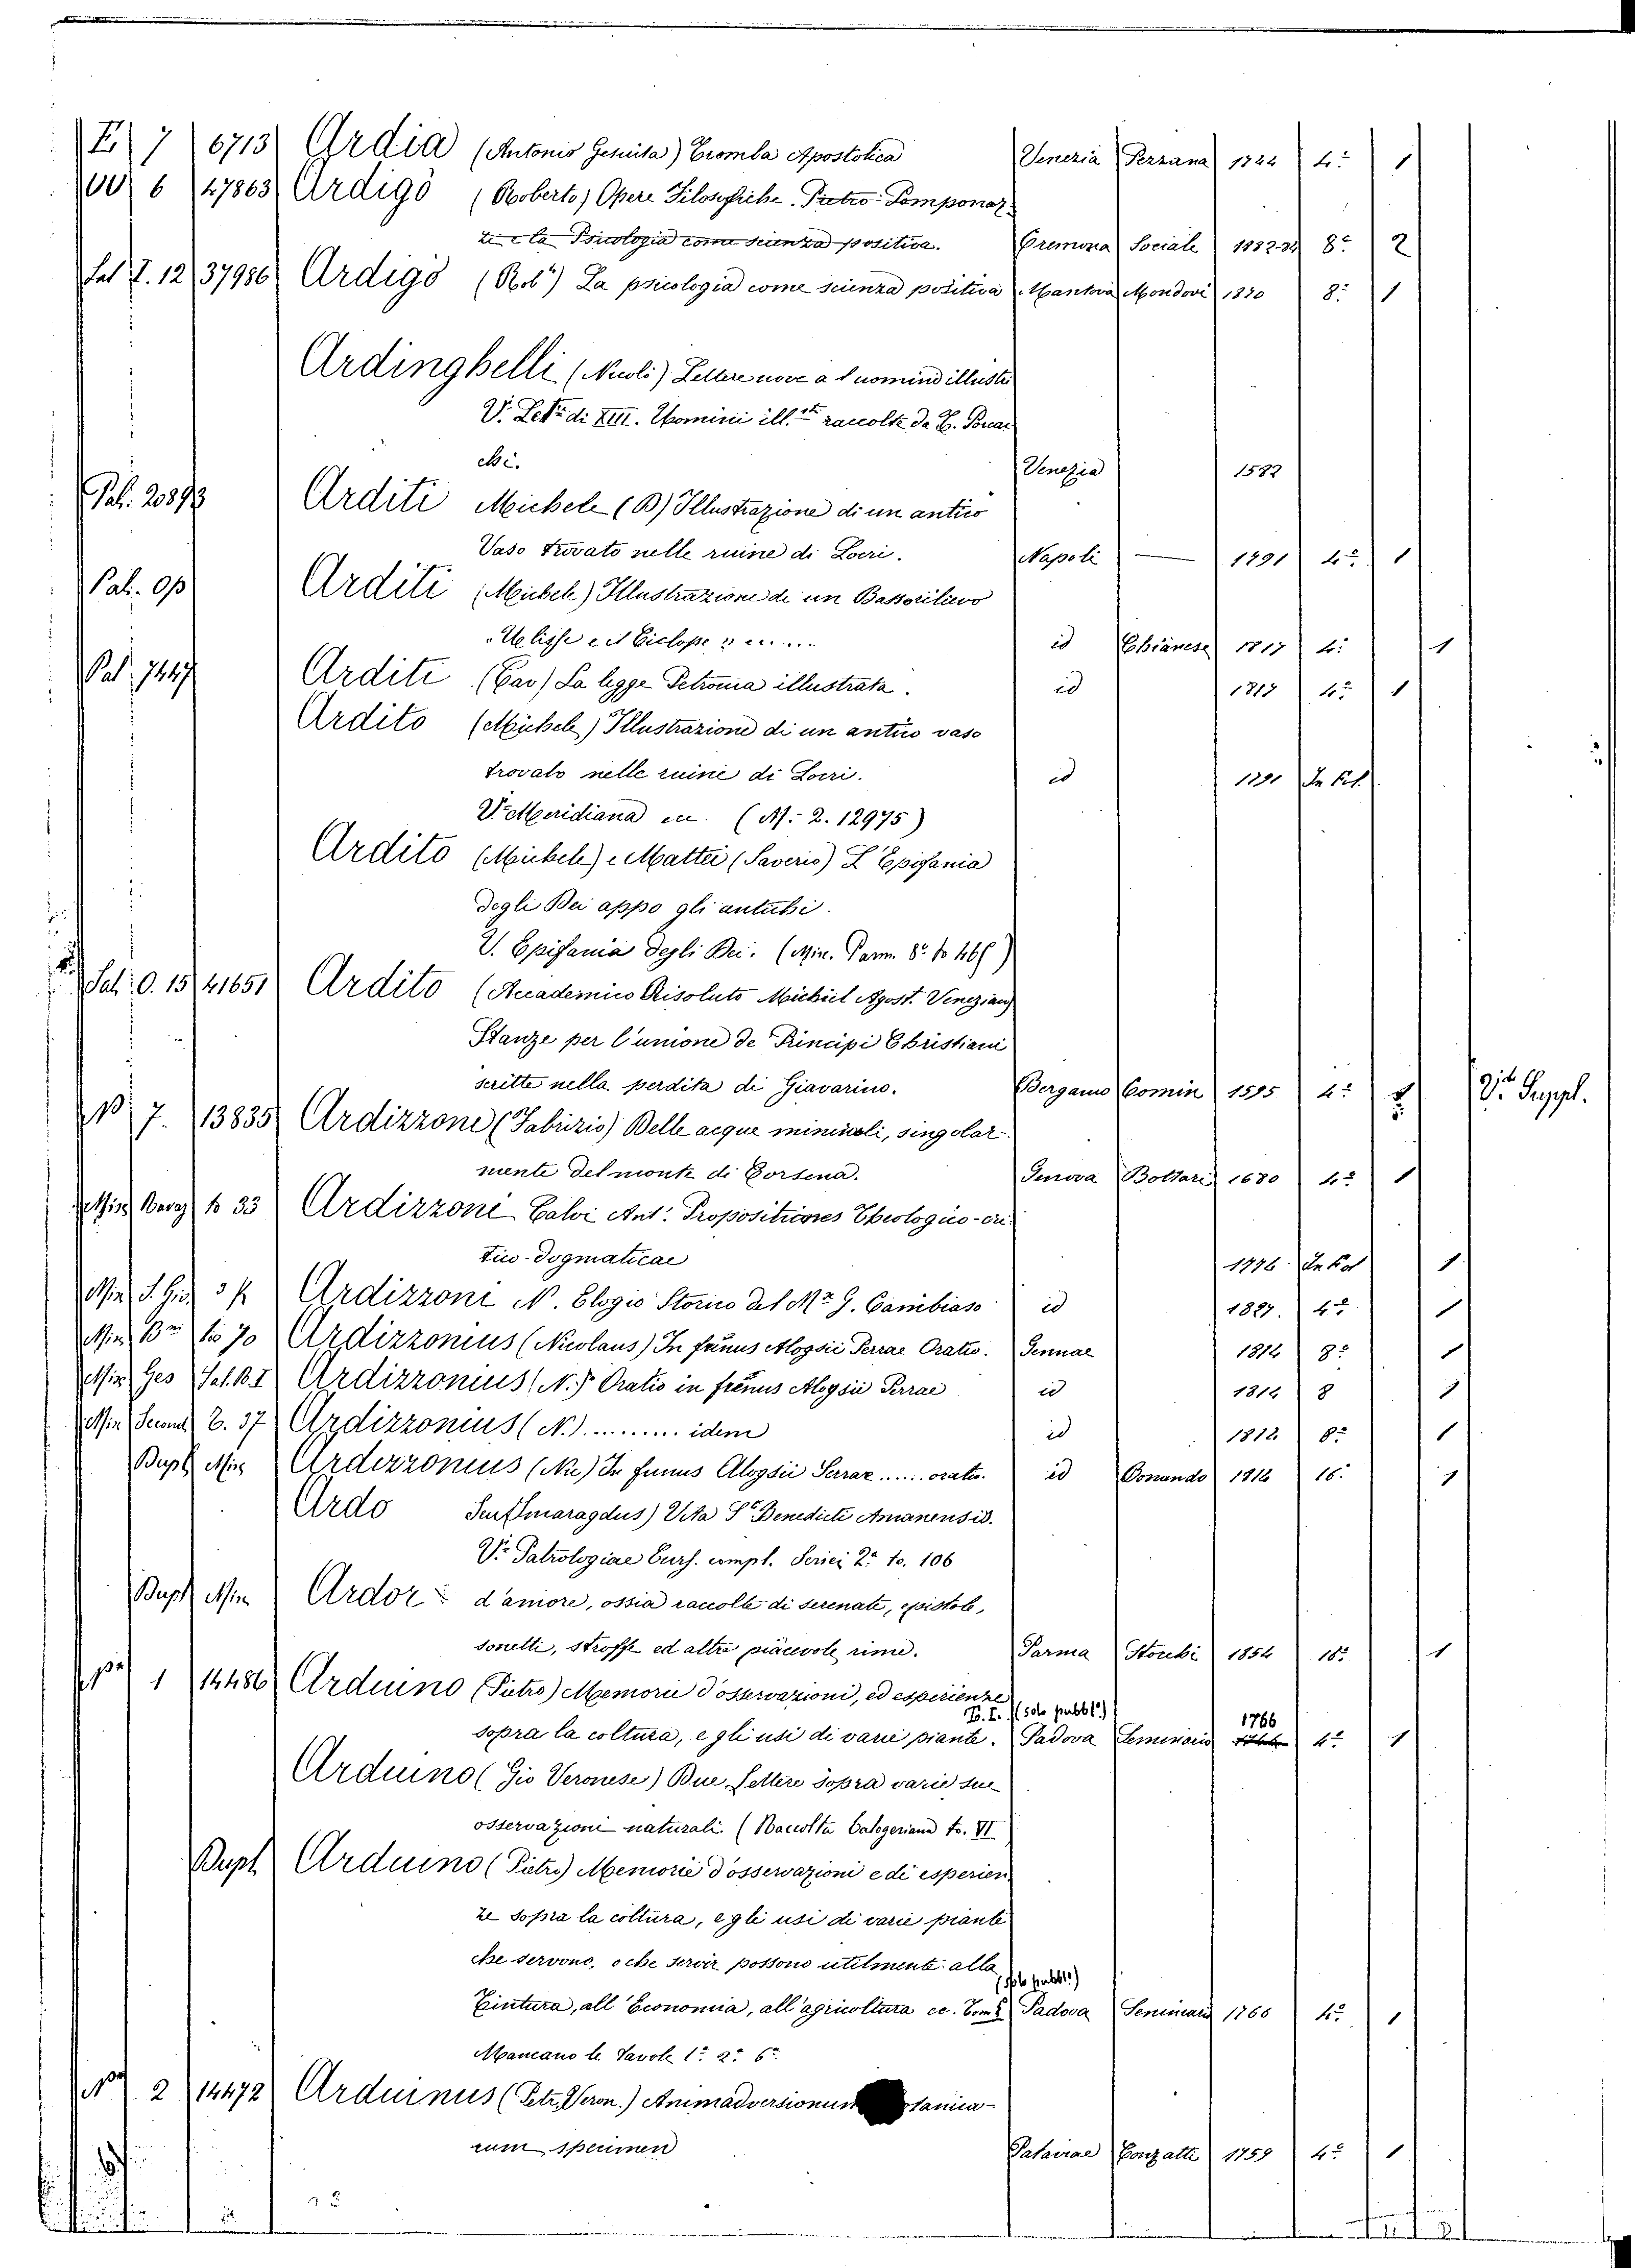 E 7 6713 Ardia (Antonio Gesuita) Tromba Apostolica Venezia Pezzana 1744 4.° 1
OO 6 47863 Ardigò (Roberto) Opere Filosofiche. Pietro Pomponaz-
zi e la Psicologia come scienza positiva. Cremona Sociale 1882-84 8.° 2
Sal I. 12 37986 Ardigò (Rob°) La psicologia come scienza positiva Mantova Mondovi 1870 8.° 1
Ardinghelli (Nicolò) Lettere nove a d'uomini illustri
V. Lett.e di XIII. Uomini ill.mi raccolte da T. Porcac
chi. Venezia 1582
Pal. 20893 Arditi Michele (D) Illustrazione di un antico
Vaso trovato nelle ruine di Locri. Napoli — 1791 4.° 1
Pal. Op Arditi (Michele) Illustrazione di un Bassorilievo
"Ulisse e il Ciclope" id Chianese 1817 4.° 1
Pal. 7447 Arditi (Cav) La legge Petronia illustrata. id 1817 4.° 1
Ardito (Michele) Illustrazione di un antico vaso
trovato nelle ruine di Locri. id 1791 In fol.
V. Meridiana (N. 2. 12975)
Ardito (Michele) e Mattei (Saverio) L'Epifania
degli Dei appo gli antichi.
V. Epifania degli Dei. (Min. Parm. 8.° to 466)
Sal. O. 15 41651 Ardito (Accademico Risoluto Michiel Agost. Veneziano)
Stanze per l'unione de' Principi Christiani
scritte nella perdita di Giavarino. Bergamo Comin 1595 4.° V. Suppl.
N 7. 13835 Ardizzone (Fabrizio) Delle acque minerali, singolar-
mente del monte di Corsena. Genova Bottari 1680 4.° 1
Min to 33 Ardizzone Calvi Ant. Propositiones Theologico-cri-
tico-dogmaticae 1776 In Fol 1
Ardizzoni N. Elogio Storico del M.se G. Cambiaso id 1827. 4.° 1
Min to 70 Ardizzonius (Nicolaus) In funus Aloysii Serrae Oratio. Genuae 1814 8.° 1
Min Ges Ardizzonius (N.) Oratio in funus Aloysii Serrae id 1814 8 1
Min Second B. 37 Ardizzonius (N.) .......... idem id 1812 8.° 1
Dupl Min Ardizzonius (Nic) In funus Aloysii Serrae ...... oratio. id Bonando 1814 16.° 1
Ardo Seu Smaragdus) Vita S. Benedicti Amanensis.
V. Patrologiae Curs. compl. Seriei 2.a to. 106
Dupl Min Ardor d'amore, ossia raccolte di serenate, epistole,
sonetti, stroffe ed altre piacevole rime. Parma Stocchi 1854 18.° 1
1 14486 Arduino (Pietro) Memorie d'osservazioni, ed esperienze
T. I. (solo pubbl.°)
sopra la coltura, e gli usi di varie piante. Padova Seminario 1766 4.° 1
Arduino (Gio Veronese) Due Lettere sopra varie sue
osservazioni naturali. (Raccolta Calogeriana to. VI
Dupl Arduino (Pietro) Memorie d'osservazioni e di esperien
ze sopra la coltura, e gli usi di varie piante
che servono, o che servir possono utilmente alla
(solo pubbl.°)
Tintura, all'Economia, all'agricoltura ec. Tom I Padova Seminario 1766 4.° 1
Mancano le Tavole 1.a 2.a 6.a
2 14472 Arduinus (Petr. Veron.) Animadversionum Botanica-
rum specimen Pataviae Conzatti 1759 4.° 1